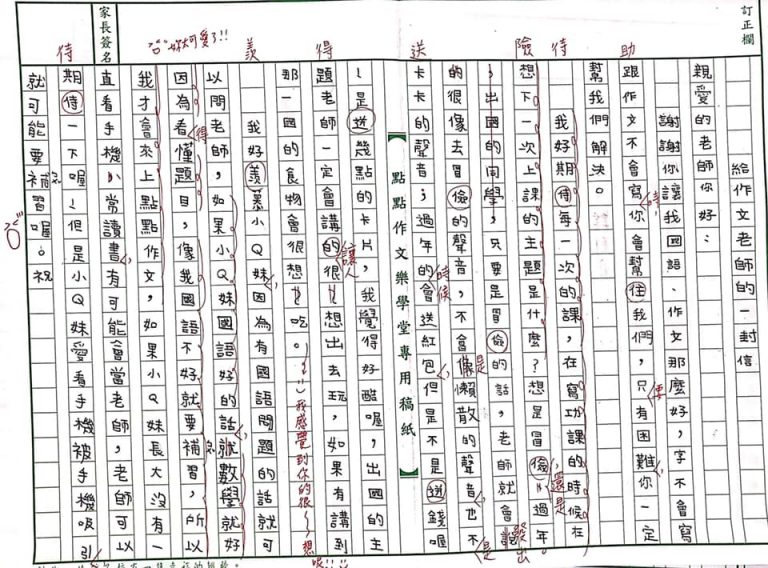 訂正欄
助
待
險
送
得
羨
哈哈好可愛了!!
待
家長簽名
給作文老師的一封信
親愛的老師你好：
謝謝你讓我國語、作文那麼好，字不會寫
跟作文不會寫你會幫住我們，只有困難你一定
幫我們解決。
我好期侍每一次的課，在寫功課的時候在
想下一次上課的主題是什麼？想是冒儉、過年
、出國的同學，只要是冒儉的話，老師就會說
的很像去冒儉的聲音，不會像懶散的聲音也不
卡卡的聲音；過年的會送紅包但是不是送錢喔
【點點作文樂學堂專用稿紙】
~是送幾點的卡片，我覺得好酷喔，出國的主
題老師一定會講的很想出去玩，如果有講到
那一國的食物會很想吃。
我感覺到你的很~~想
我好羨慕小Q妹因為有國語問題的話就可
以問老師，如果小Q妹國語好的話就數學就好
因為看懂題目，像我國語不好就要補習，所以
我才會來上點點作文，如果小Q妹長大沒有一
直看手機、常讀書有可能會當老師，老師可以
期侍一下喔~但是小Q妹愛看手機被手機吸引
就可能要補習喔。祝
時
要
還是
發出
是
時候
讓人
得